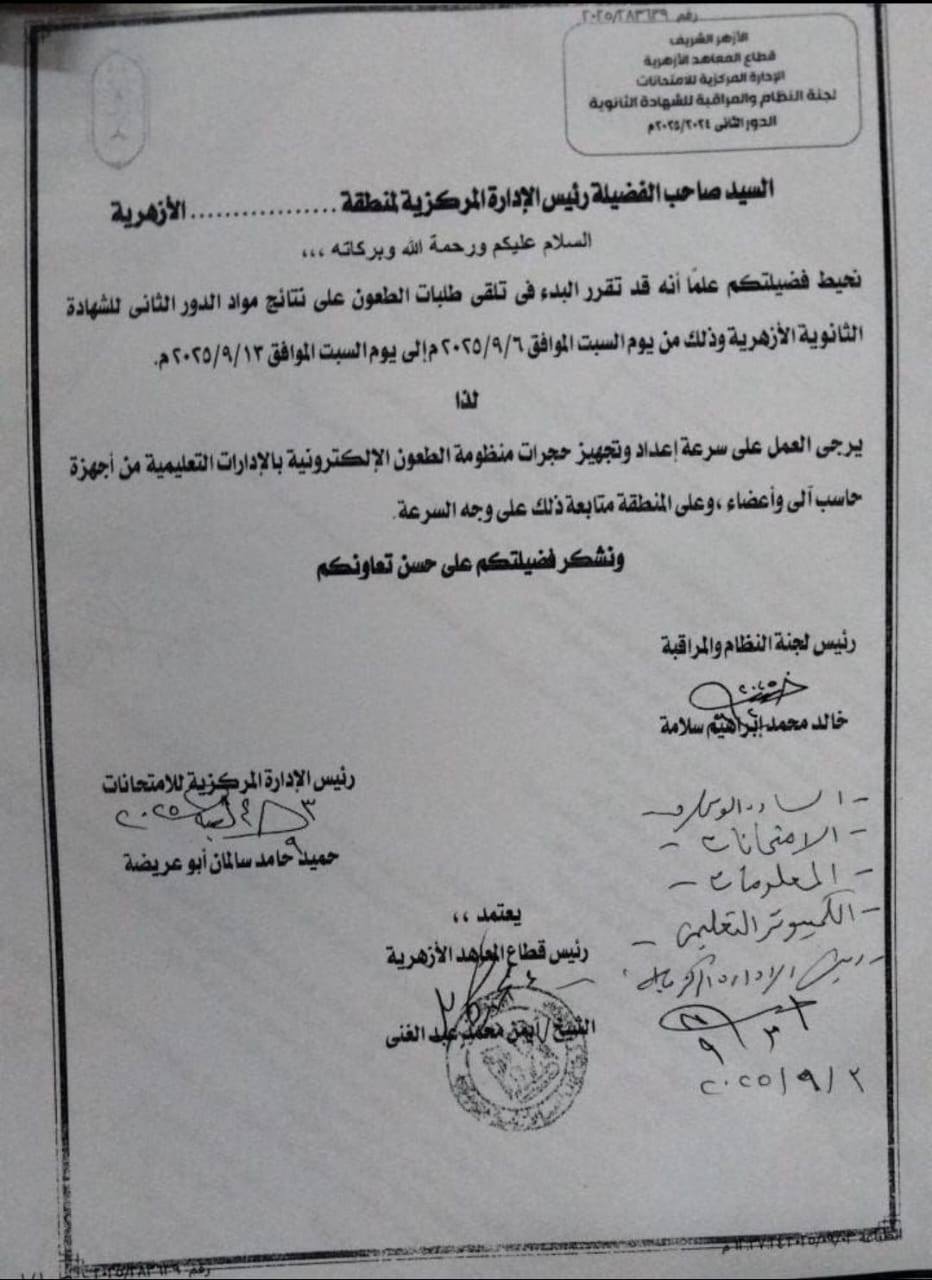 رقم ٢٠٢٥/٢٨٣٦٣٩
الأزهر الشريف
قطاع المعاهد الأزهرية
الإدارة المركزية للامتحانات
لجنة النظام والمراقبة للشهادة الثانوية
الدور الثانى ٢٠٢٥/٢٠٢٤م
السيد صاحب الفضيلة رئيس الإدارة المركزية لمنطقة ................. الأزهرية
السلام عليكم ورحمة الله وبركاته ،،،
نحيط فضيلتكم علمًا أنه قد تقرر البدء فى تلقى طلبات الطعون على نتائج مواد الدور الثانى للشهادة
الثانوية الأزهرية وذلك من يوم السبت الموافق ٢٠٢٥/٩/٦ م إلى يوم السبت الموافق ٢٠٢٥/٩/١٣ م.
لذا
يرجى العمل على سرعة إعداد وتجهيز حجرات منظومة الطعون الإلكترونية بالإدارات التعليمية من أجهزة
حاسب آلى وأعضاء ،وعلى المنطقة متابعة ذلك على وجه السرعة.
ونشكر فضيلتكم على حسن تعاونكم
رئيس لجنة النظام والمراقبة
٢٠٢٥
خالد محمد إبراهيم سلامة
رئيس الإدارة المركزية للامتحانات
٢٠٢٥
حميد حامد سالمان أبو عريضة
- السادة
- الامتحانات -
- المعلومات -
- الكمبيوتر التعليمى -
يعتمد ،،
رئيس قطاع المعاهد الأزهرية
الشيخ / أيمن محمد عبد الغنى
٢٠٢٥/٩/٢
رقم ٢٠٢٥/٢٨٣٦٣٩